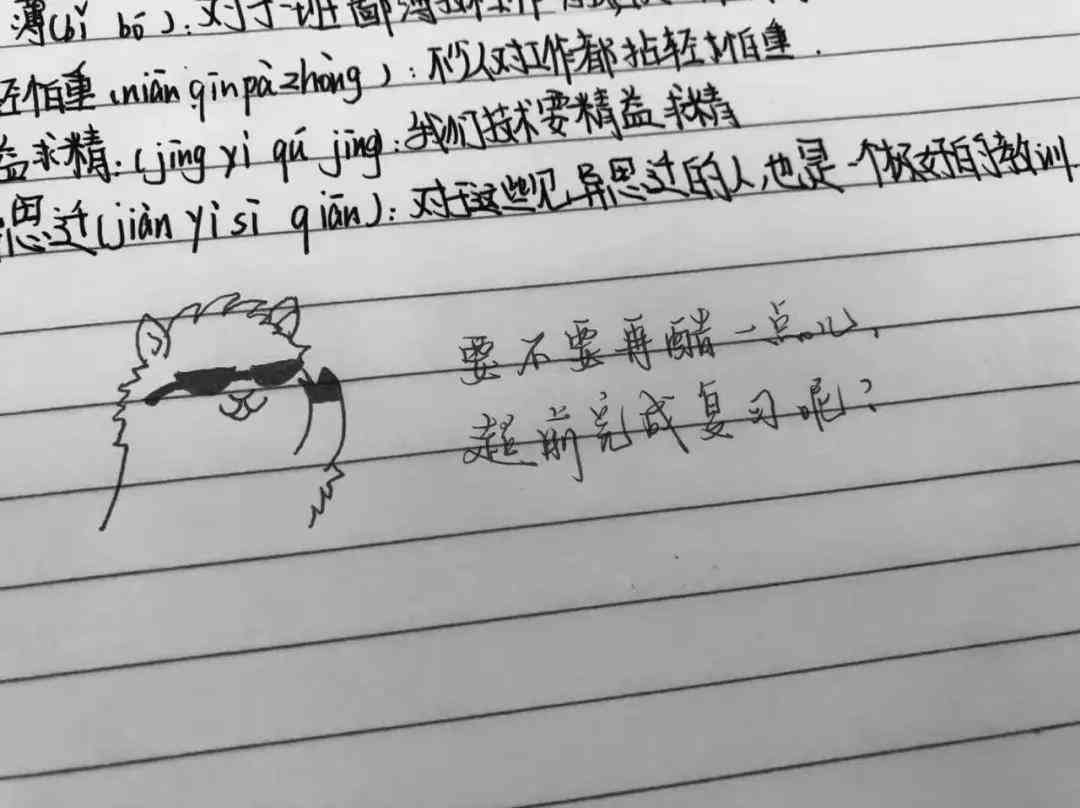 薄(bǐ bó):对于一班鄙薄技术工作
轻怕重(niān qīn pà zhòng):不少人对工作都拈轻怕重.
益求精:(jīng yì qú jīng):我们技术要精益求精
思迁(jiàn yì sī qiān):对于这些见异思迁的人,也是一个极好的教训
要不要再醋一点儿,
超前完成复习呢?